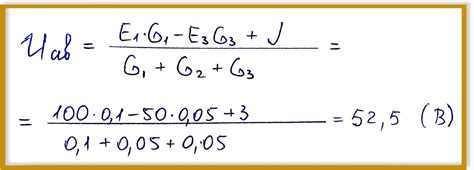 Uab = (E₁·G₁ - E₃G₃ + J) / (G₁ + G₂ + G₃) =
= (100·0,1 - 50·0,05 + 3) / (0,1 + 0,05 + 0,05) = 52,5 (B)